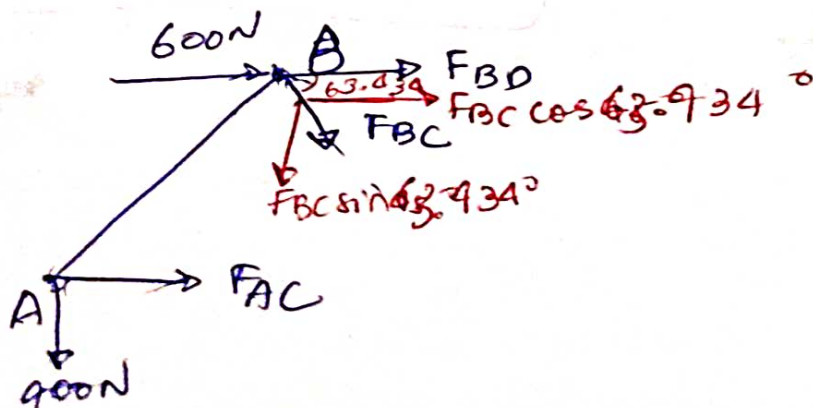 600N
B
F_BD
63.434
F_BC cos 63.434°
F_BC
F_BC sin 63.434°
F_AC
A
900N